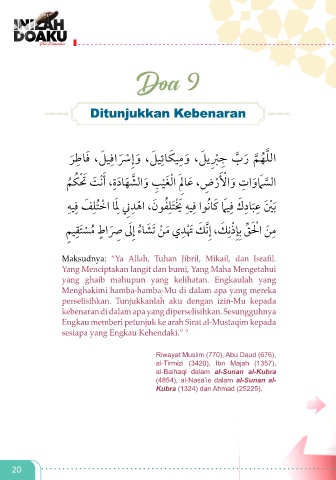 INILAH
DOAKU
Doa 9
Ditunjukkan Kebenaran
اللَّهُمَّ رَبَّ جِبْرِيلَ، وَمِيكَائِيلَ، وَإِسْرَافِيلَ، فَاطِرَ
السَّمَاوَاتِ وَالْأَرْضِ، عَالِمَ الْغَيْبِ وَالشَّهَادَةِ، أَنْتَ تَحْكُمُ
بَيْنَ عِبَادِكَ فِيمَا كَانُوا فِيهِ يَخْتَلِفُونَ، اهْدِنِي لِمَا اخْتُلِفَ فِيهِ
مِنَ الْحَقِّ بِإِذْنِكَ، إِنَّكَ تَهْدِي مَنْ تَشَاءُ إِلَى صِرَاطٍ مُسْتَقِيمٍ
Maksudnya: “Ya Allah, Tuhan Jibril, Mikail, dan Israfil.
Yang Menciptakan langit dan bumi, Yang Maha Mengetahui
yang ghaib mahupun yang kelihatan. Engkaulah yang
Menghakimi hamba-hamba-Mu di dalam apa yang mereka
perselisihkan. Tunjukkanlah aku dengan izin-Mu kepada
kebenaran di dalam apa yang diperselisihkan. Sesungguhnya
Engkau memberi petunjuk ke arah Sirat al-Mustaqim kepada
sesiapa yang Engkau Kehendaki.”
Riwayat Muslim (770), Abu Daud (676),
al-Tirmizi (3420), Ibn Majah (1357),
al-Baihaqi dalam al-Sunan al-Kubra
(4854), al-Nasa'ie dalam al-Sunan al-
Kubra (1324) dan Ahmad (25225).
20